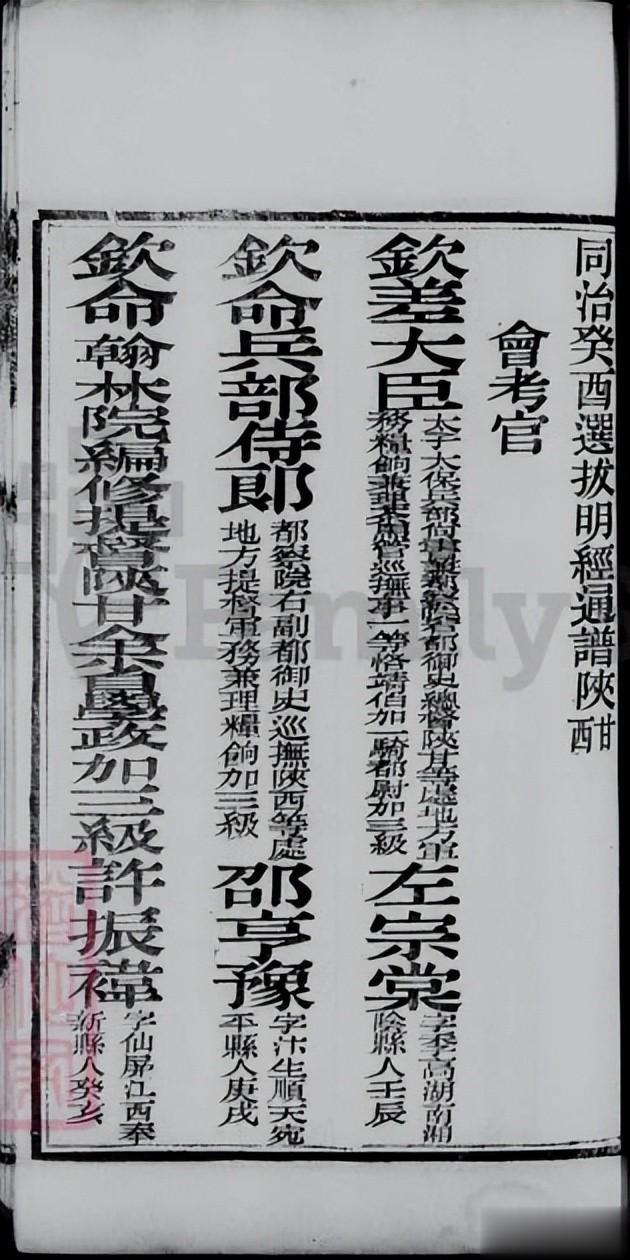 同治癸酉選拔明經通譜陝甘西
會考官
欽差大臣
太子太保兵部尚書兼都察院右都御史總督陝甘等處地方軍
務糧餉兼理茶馬管巡撫事一等恪靖伯加一騎都尉加三級
左宗棠
字季高湖南湘
陰縣人壬辰
欽命兵部侍郎
都察院右副都御史巡撫陝西等處
地方提督軍務兼理糧餉加三級
邵亨豫
字汴生順天宛
平縣人庚戌
欽命翰林院編修提督陝甘全省學政加三級許振禕
字仙屏江西奉
新縣人癸亥